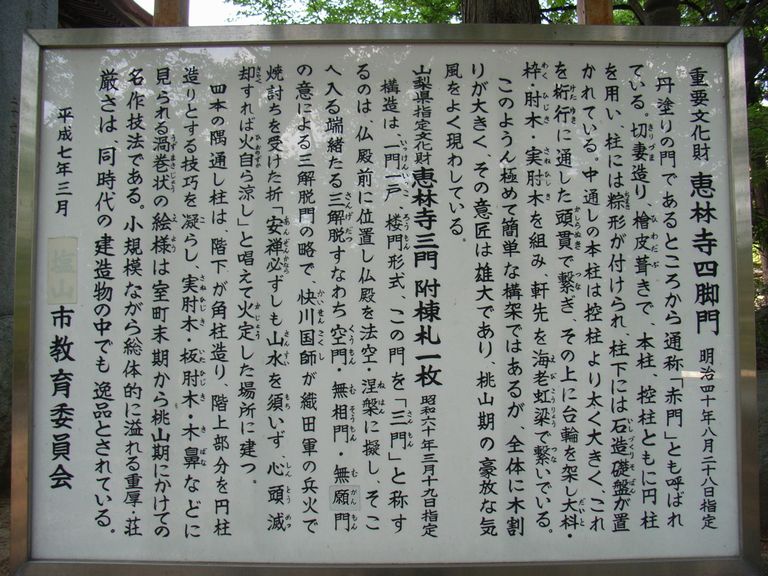 重要文化財 恵林寺四脚門 明治四十年八月二十八日指定
丹塗りの門であるところから通称「赤門」とも呼ばれ
ている。切妻造り、檜皮葺きで、本柱、控柱ともに円柱
を用い、柱には粽形が付けられ、柱下には石造礎盤が置
かれている。中通しの本柱は控柱より太く大きく、これ
を桁行に通した頭貫で繋ぎ、その上に台輪を架し大枓・
枠・肘木・実肘木を組み、軒先を海老虹梁で繋いでいる。
このようん極めて簡単な構架ではあるが、全体に木割
りが大きく、その意匠は雄大であり、桃山期の豪放な気
風をよく現わしている。
山梨県指定文化財 恵林寺三門 附棟札一枚 昭和六十年三月十九日指定
構造は、一門一戸、楼門形式、この門を「三門」と称す
るのは、仏殿前に位置し仏殿を法空・涅槃に擬し、そこ
へ入る端緒たる三解脱すなわち空門・無相門・無願門
の意による三解脱門の略で、快川国師が織田軍の兵火で
焼討ちを受けた折「安禅必ずしも山水を須いず、心頭滅
却すれば火自ら涼し」と唱えて火定した場所に建つ。
四本の隅通し柱は、階下が角柱造り、階上部分を円柱
造りとする技巧を凝らし、実肘木・板肘木・木鼻などに
見られる渦巻状の絵様は室町末期から桃山期にかけての
名作技法である。小規模ながら総体的に溢れる重厚・荘
厳さは、同時代の建造物の中でも、逸品とされている。
平成七年三月 塩山市教育委員会